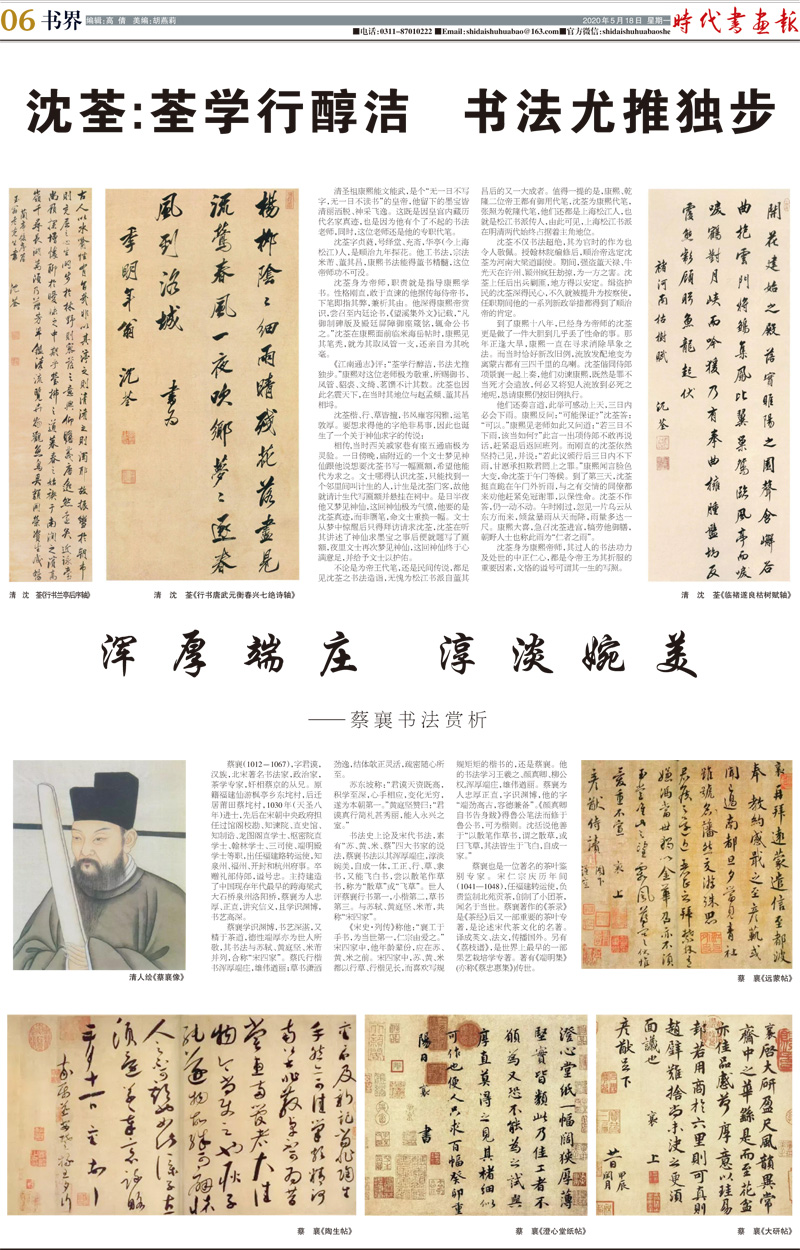 06 书界
编辑:高 倩 美编:胡燕莉
2020年5月18日 星期一
■电话:0311-87010222 ■Email:shidaishuhuabao@163.com■官方微信:shidaishuhuabaoshe
时代书画报
沈荃:荃学行醇洁 书法尤推独步
清 沈 荃《行书兰亭后序轴》
清 沈 荃《行书唐武元衡春兴七绝诗轴》
杨柳阴阴细雨晴残花落尽见
流莺春风一夜吹乡梦梦逐春
风到洛城
沈荃
清圣祖康熙能文能武,是个“无一日不写
字,无一日不读书”的皇帝,他留下的墨宝皆
清丽洒脱、神采飞逸。这既是因皇宫内藏历
代名家真迹,也是因为他有个了不起的书法
老师,同时,这位老师还是他的专职代笔。
沈荃字贞蕤,号绎堂、充斋,华亭(今上海
松江)人,是顺治九年探花。他工书法,宗法
米芾、董其昌,康熙书法能得董书精髓,这位
帝师功不可没。
沈荃身为帝师,职责就是指导康熙学
书。性格刚直,敢于直谏的他据传每侍帝书,
下笔即指其弊,兼析其由。他深得康熙帝赏
识,尝召至内廷论书,《望溪集外文》记载,“凡
御制碑版及殿廷屏障御座箴铭,辄命公书
之。”沈荃在康熙面前临米海岳帖时,康熙见
其笔秃,就为其取风管一支,还亲自为其吮
毫。
《江南通志》评:“荃学行醇洁,书法尤推
独步。”康熙对这位老师极为敬重,所赐御书、
风管、貂裘、文绮、茗馔不计其数。沈荃也因
此名震天下,在当时其地位与赵孟頫、董其昌
相埒。
沈荃楷、行、草皆擅,书风雍容闲雅,运笔
敦厚。要想求得他的字绝非易事,因此也诞
生了一个关于神仙求字的传说:
相传,当时四关戚家巷有座五通庙极为
灵验。一日傍晚,庙附近的一个文士梦见神
仙跟他说想要沈荃书写一幅匾额,希望他能
代为求之。文士哪得认识沈荃,只能找到一
个邻里间叫计生的人,计生是沈荃门客,故他
就请计生代写匾额并悬挂在祠中。是日半夜
他又梦见神仙,这回神仙极为气愤,他要的是
沈荃真迹,而非赝笔,命文士重换一幅。文士
从梦中惊醒后只得拜访请求沈荃,沈荃在听
其讲述了神仙求墨宝之事后便就题写了匾
额,夜里文士再次梦见神仙,这回神仙终于心
满意足,并给予文士以护佑。
不论是为帝王代笔,还是民间传说,都足
见沈荃之书法造诣,无愧为松江书派自董其
昌后的又一大成者。值得一提的是,康熙、乾
隆二位帝王都有御用代笔,沈荃为康熙代笔,
张照为乾隆代笔,他们还都是上海松江人,也
就是松江书派传人,由此可见,上海松江书派
在明清两代始终占据着主角地位。
沈荃不仅书法超绝,其为官时的作为也
令人敬佩。授翰林院编修后,顺治帝选定沈
荃为河南大梁道副使。期间,强盗董天禄、牛
光天在许州、颍州疯狂劫掠,为一方之害。沈
荃上任后出兵剿匪,地方得以安定。缉盗护
民的沈荃深得民心,不久就被提升为按察使,
任职期间他的一系列新政举措都得到了顺治
帝的肯定。
到了康熙十八年,已经身为帝师的沈荃
更是做了一件大胆到几乎丢了性命的事。那
年正逢大旱,康熙一直在寻求消除旱象之
法。而当时恰好新改旧例,流放发配地变为
寓蒙古都有三四千里的乌喇。沈荃偕同侍郎
项景襄一起上奏,他们劝谏康熙,既然是罪不
当死才会道放,何必又将犯人流放到必死之
地呢,恳请康熙仍按旧例执行。
他们还奏言道,此举可感动上天,三日内
必会下雨。康熙反问:“可能保证?”沈荃答:
“可以。”康熙见老师如此又问道:“若三日不
下雨,该当如何?”此言一出项侍郎不敢再说
话,赶紧退后返回班列。而刚直的沈荃依然
坚持己见,并说:“若此议颁行后三日内不下
雨,甘愿承担欺君罔上之罪。”康熙闻言脸色
大变,命沈荃于午门等候。到了第三天,沈荃
挺直跪在午门外祈雨,与之有交情的同僚都
来劝他赶紧免冠谢罪,以保性命。沈荃不作
答,仍一动不动。午时刚过,忽见一片乌云从
东方而来,倾盆暴雨从天而降,雨量多达一
尺。康熙大喜,急召沈荃进宫,慎劳他御膳,
朝野人士也称此雨为“仁者之雨”。
沈荃身为康熙帝师,其过人的书法功力
及处世的中正仁心,都是令帝王为其折服的
重要因素,文恪的谥号可谓其一生的写照。
清 沈 荃《临褚遂良枯树赋轴》
浑厚端庄 淳淡婉美
——蔡襄书法赏析
清人绘《蔡襄像》
蔡襄(1012—1067),字君谟,
汉族,北宋著名书法家,政治家,
茶学专家,奸相蔡京的从兄。原
籍福建仙游枫亭乡东垞村,后迁
居莆田蔡垞村,1030年(天圣八
年)进士,先后在宋朝中央政府担
任过馆阁校勘、知谏院、直史馆、
知制诰、龙图阁直学士、枢密院直
学士、翰林学士、三司使、端明殿
学士等职,出任福建路转运使,知
泉州、福州、开封和杭州府事。卒
赠礼部侍郎,谥号忠。主持建造
了中国现存年代最早的跨海梁式
大石桥泉州洛阳桥,蔡襄为人忠
厚、正直,讲究信义,且学识渊博,
书艺高深。
蔡襄学识渊博,书艺深湛,又
精于茶道,德性端厚亦为世人所
敬,其书法与苏轼、黄庭坚、米芾
并列,合称“宋四家”。蔡氏行楷
书浑厚端庄,雄伟遒丽;草书潇洒
劲逸,结体欹正灵活,疏密随心所
至。
苏东坡称:“君谟天资既高,
积学至深,心手相应,变化无穷,
遂为本朝第一。”黄庭坚赞曰:“君
谟真行简札甚秀丽,能入永兴之
室。”
书法史上论及宋代书法,素
有“苏、黄、米、蔡”四大书家的说
法,蔡襄书法以其浑厚端庄,淳淡
婉美,自成一体,工正、行、草、隶
书,又能飞白书,尝以散笔作草
书,称为“散草”或“飞草”。世人
评蔡襄行书第一,小楷第二,草书
第三。与苏轼、黄庭坚、米芾,共
称“宋四家”。
《宋史·列传》称他:“襄工于
手书,为当世第一,仁宗由爱之。”
宋四家中,他年龄辈份,应在苏、
黄、米之前。宋四家中,苏、黄、米
都以行草、行楷见长,而喜欢写规
规矩矩的楷书的,还是蔡襄。他
的书法学习王羲之、颜真卿、柳公
权,浑厚端庄,雄伟遒丽。蔡襄为
人忠厚正直,学识渊博,他的字
“端劲高古,容德兼备”。《颜真卿
自书告身跋》得鲁公笔法而修于
鲁公书,可为楷则。沈括说他善
于“以散笔作草书,谓之散草,或
曰飞草,其法皆生于飞白,自成一
家。”
蔡襄也是一位著名的茶叶鉴
别专家。宋仁宗庆历年间
(1041—1048),任福建转运使,负
责监制北苑贡茶,创制了小团茶,
闻名于当世。蔡襄著作的《茶录》
是《茶经》后又一部重要的茶叶专
著,是论述宋代茶文化的名著。
译成英文、法文,传播国外。另有
《荔枝谱》,是世界上最早的一部
果艺栽培学专著。著有《端明集》
(亦称《蔡忠惠集》)传世。
蔡 襄《远蒙帖》
蔡 襄《陶生帖》
澄心堂纸一幅阔狭厚薄
坚实皆类此乃佳工者不
愿为又恐不能为之试与
厚直莫得之见其楮细似
可作也便人只求百幅癸卯重
阳日 襄 书
蔡 襄《澄心堂纸帖》
襄启大研盈尺风韵异常
斋中之华繇是而至花盆
亦佳品感荷厚意以珪易
邦若用商於六里则可真则
赵璧难舍尚未决之更须
面议也 襄 上
彦猷足下
蔡 襄《大研帖》